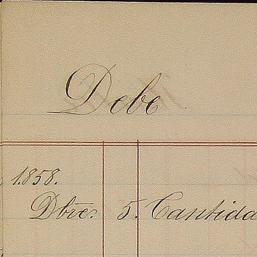 Debe
1858.
Dbre. 5. Cantida